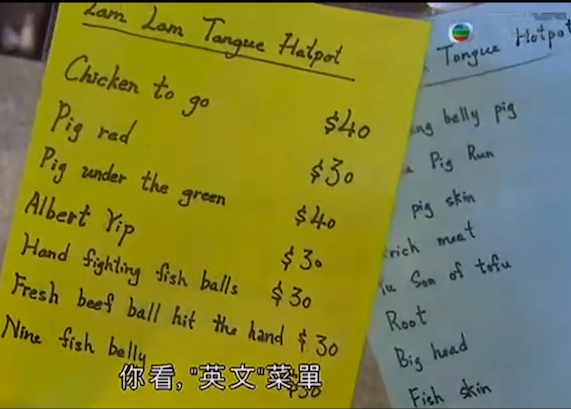 Lam Lam Tongue Hotpot
Chicken to go $40
Pig red $30
Pig under the green $40
Albert Yip $30
Hand fighting fish balls $30
Fresh beef ball hit the hand $30
Nine fish belly $30
Tongue Hotpot
belly pig
Pig Run
pig skin
rich meat
Son of tofu
Root
Big head
Fish skin
你看,"英文"菜單